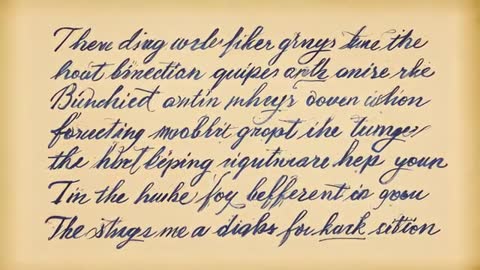 There ding wsle fiker grnys tune the
hoat binectian quipes anthe anire rhe
Bunchied antin mheys doven ixhon
foructing moobbit gropt ihe tumger
the hbrt keping nigutmare hep youn
I in the huuke foy befferent io goou
The stngs me a diahs for kark sittion